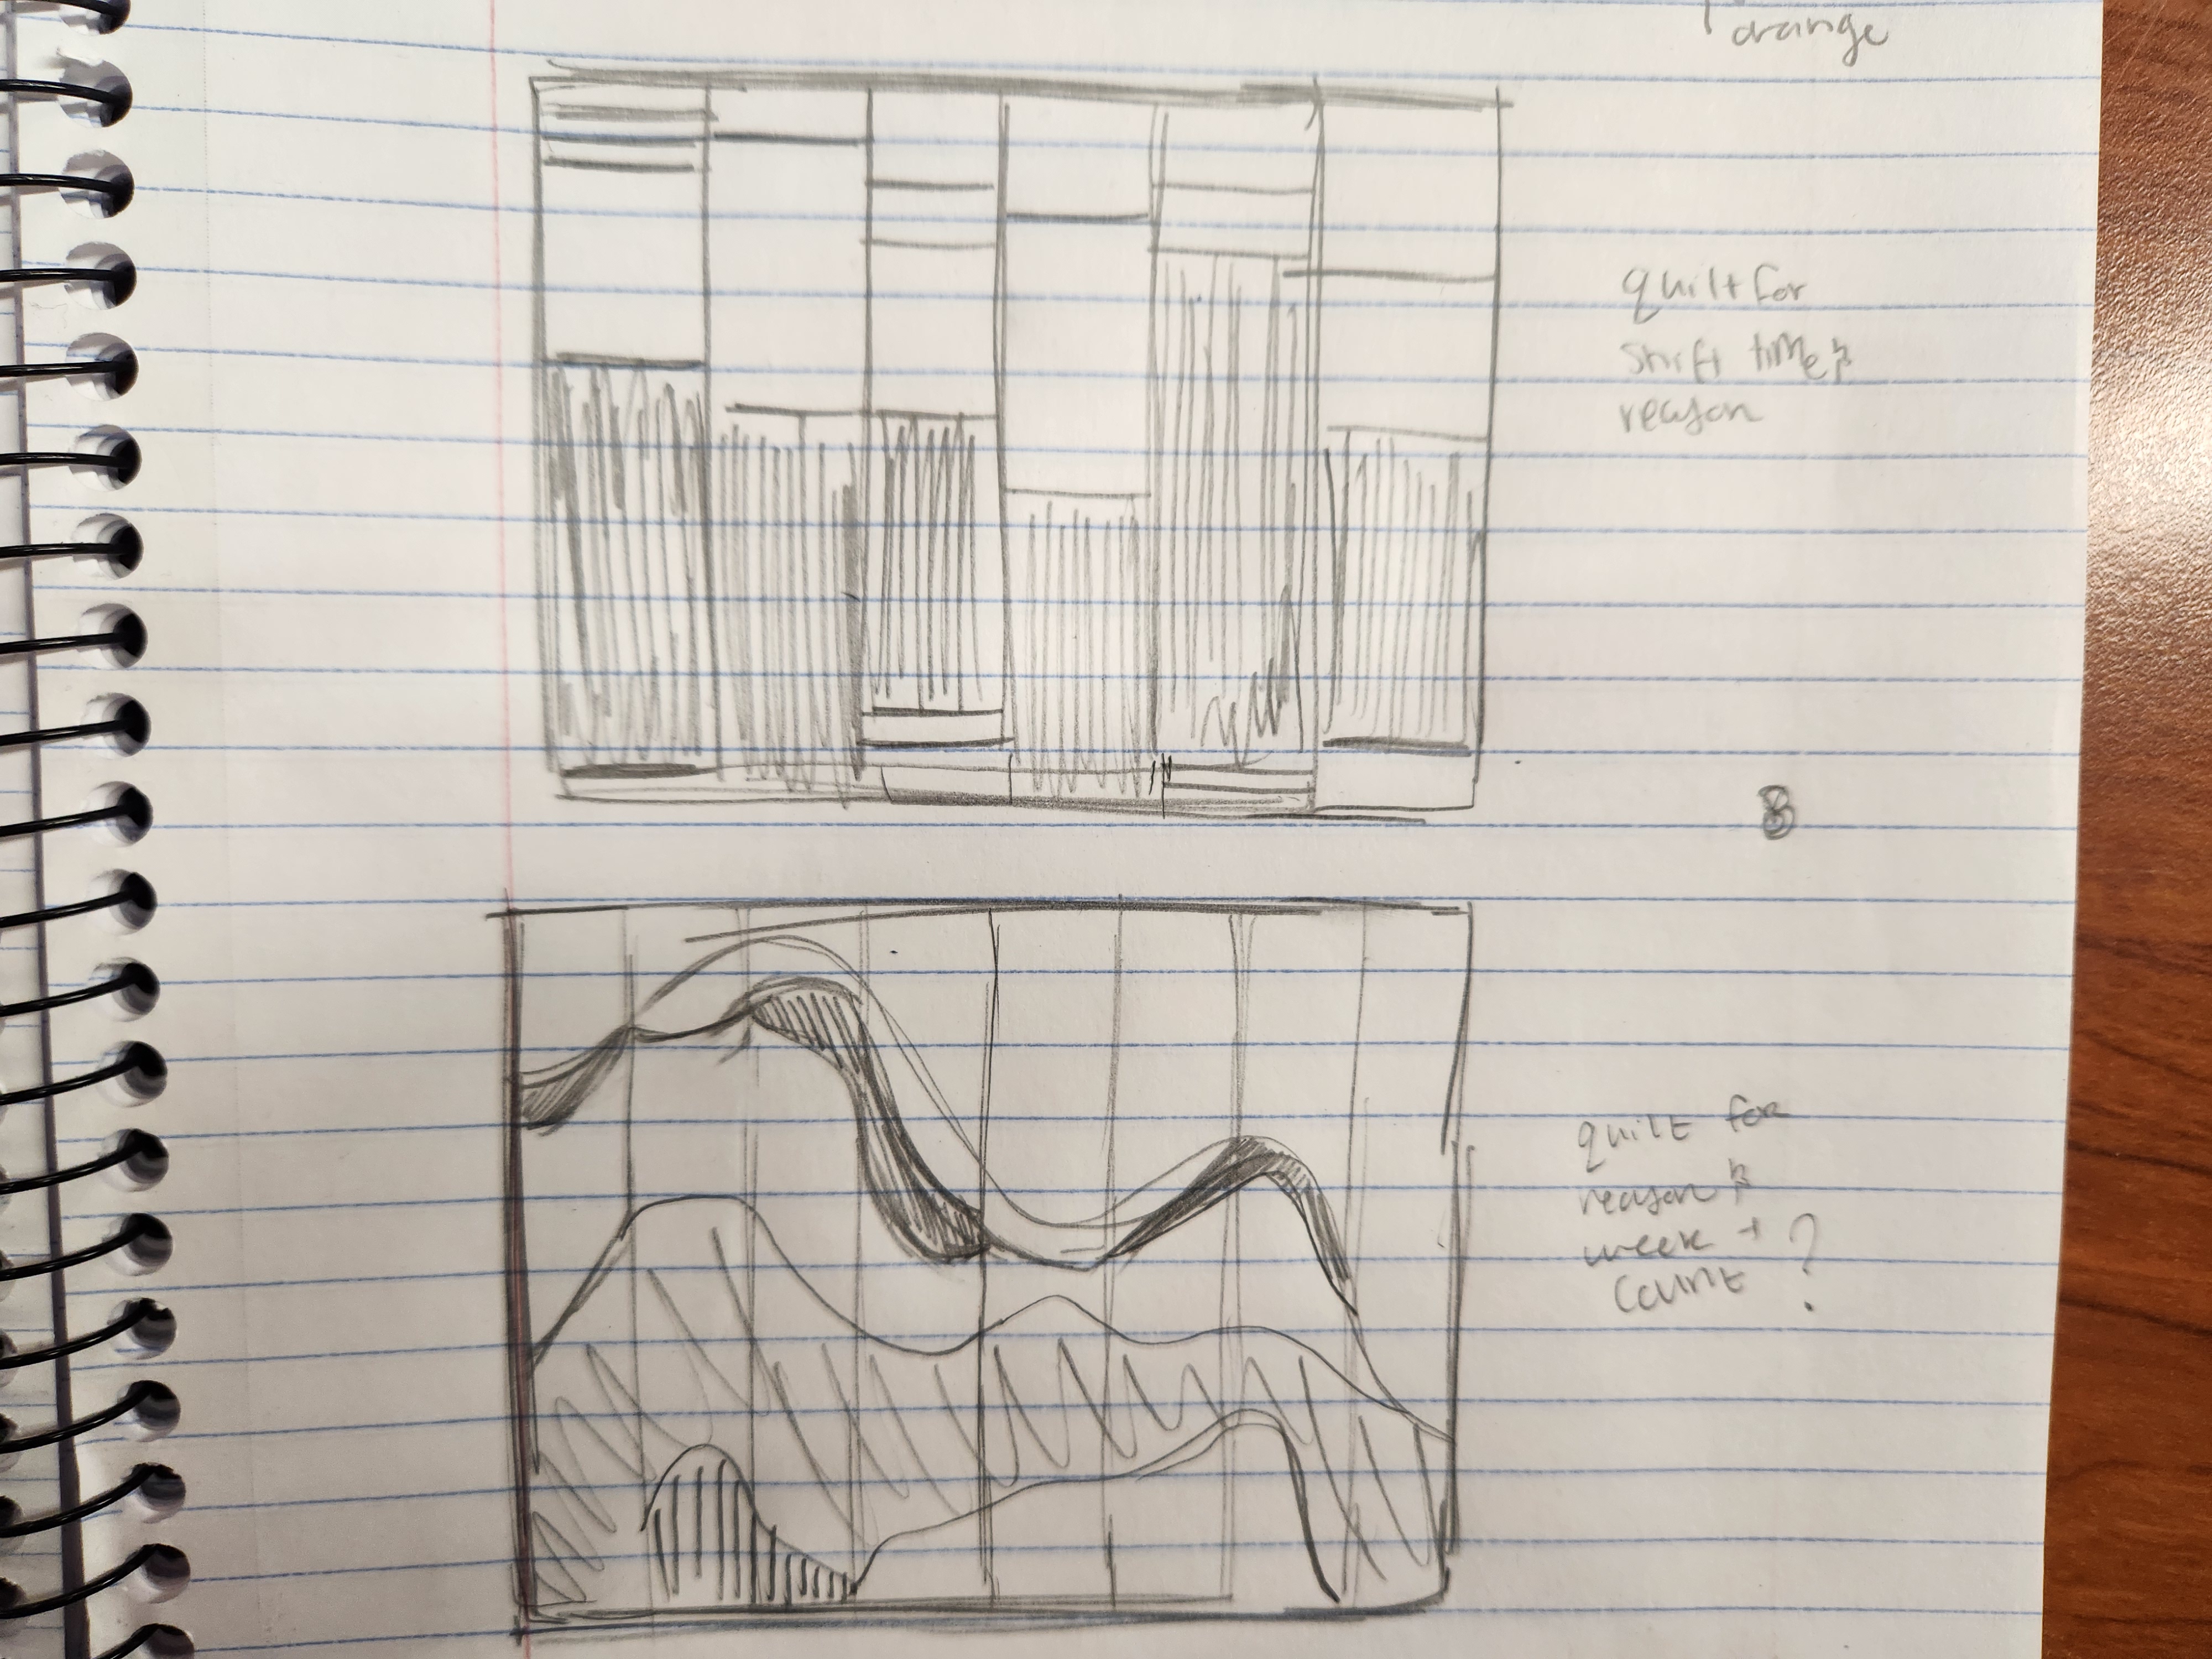 orange
quilt for
shift time &
reason
8
quilt for
reason &
week + ?
count